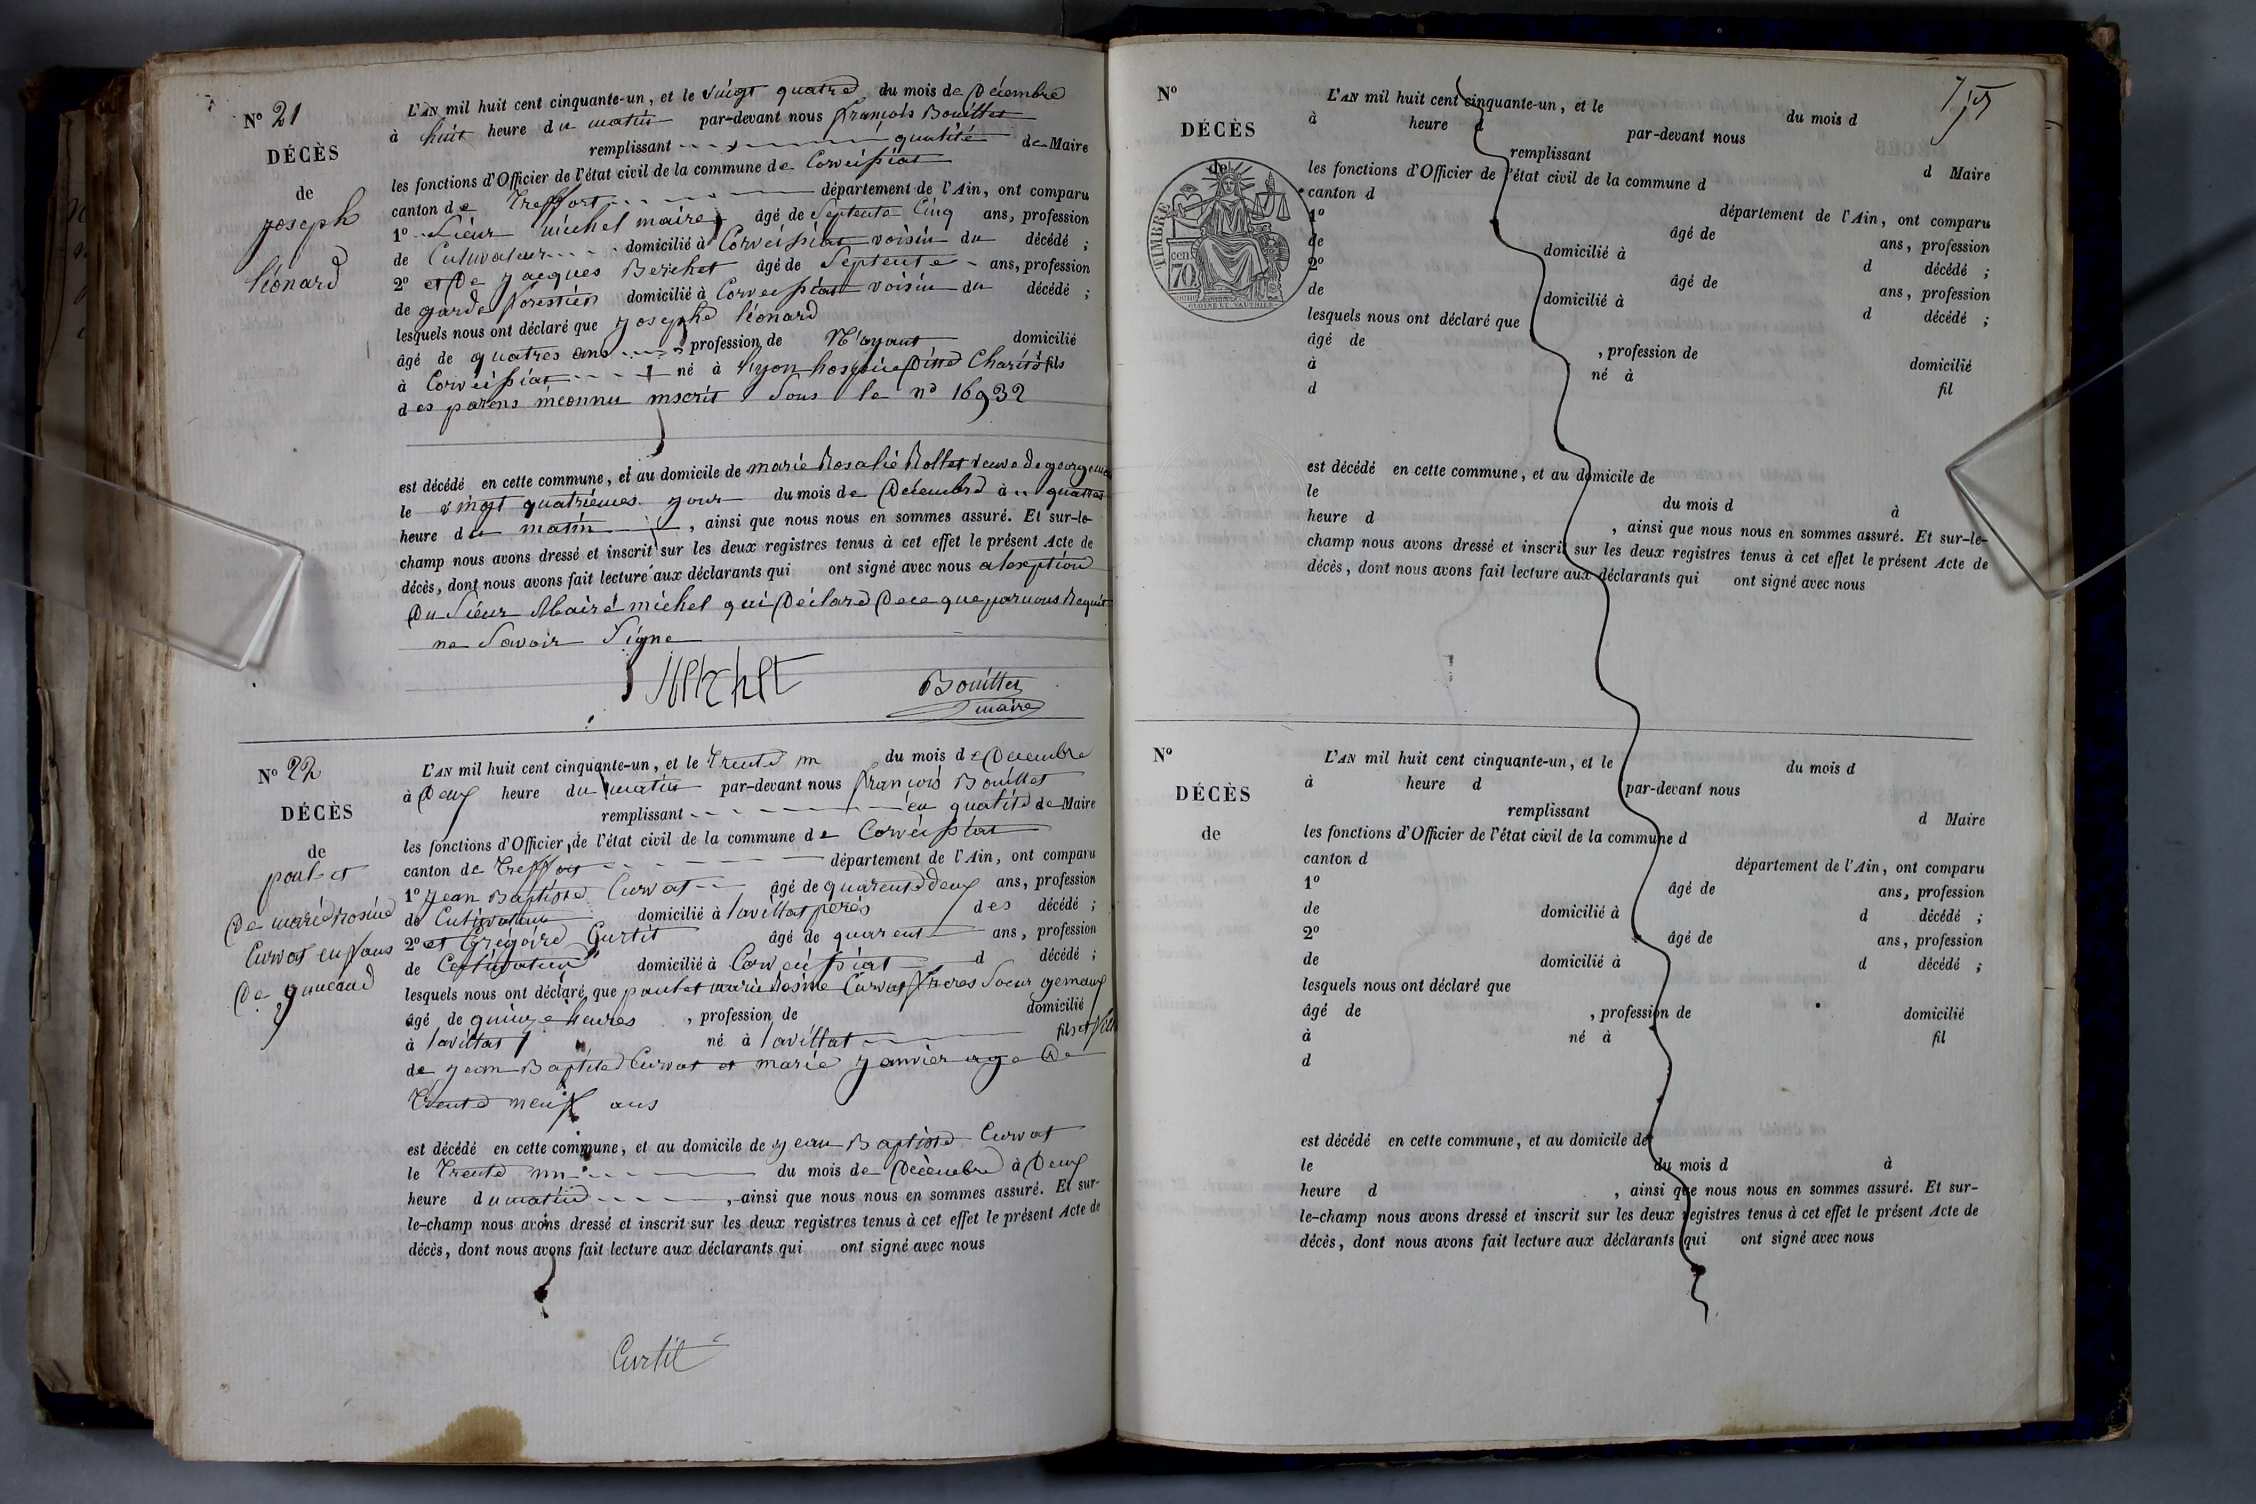 N° 21
DÉCÈS
de
joseph
léonard
L'AN mil huit cent cinquante-un, et le vingt quatre du mois de Décembre
à huit heure du matin par-devant nous françois Bouillet
remplissant qualité de Maire
les fonctions d'Officier de l'état civil de la commune de Corveissiat
canton de Treffort département de l'Ain, ont comparu
1° Sieur michel maire âgé de Septente Cinq ans, profession
de Cultivateur domicilié à Corveissiat voisin du décédé ;
2° et De jacques Berchet âgé de Septente ans, profession
de garde forestier domicilié à Corveissiat voisin du décédé ;
lesquels nous ont déclaré que josephe léonard
âgé de quatres ans profession de N'ayant domicilié
à Corveissiat né à lyon hospice Ditte Charité fils
des parens inconnu inscrit Sous le n° 16932
est décédé en cette commune, et au domicile de marie Rosalie Rollet veuve de george
le vingt quatriemes jour du mois de Décembre à quatres
heure du matin, ainsi que nous nous en sommes assuré. Et sur-le-
champ nous avons dressé et inscrit sur les deux registres tenus à cet effet le présent Acte de
décès, dont nous avons fait lecture aux déclarants qui ont signé avec nous alexeption
Du Sieur Maire michel qui Déclare De ce que par nous Requit
ne Savoir Signe
Bouillet
maire
N° 22
DÉCÈS
de
paul et
De marie Rosine
Curvat enfans
De jumeaud
L'AN mil huit cent cinquante-un, et le Trente un du mois de Décembre
à Deux heure du matin par-devant nous françois Bouillet
remplissant en qualité de Maire
les fonctions d'Officier de l'état civil de la commune de Corveissiat
canton de Treffort département de l'Ain, ont comparu
1° jean Baptiste Curvat âgé de quarente deux ans, profession
de Cultivateur domicilié à lavillat pères des décédé ;
2° et Grégoire Curtit âgé de quarent ans, profession
de Cultivateur domicilié à Corveissiat d décédé ;
lesquels nous ont déclaré que paul et marie Rosine Curvat freres Soeur gemaux
âgé de quinze heures, profession de domicilié
à lavillat né à lavillat fils et
de jean Baptiste Curvat et marie janvier age De
Trente neuf ans
est décédé en cette commune, et au domicile de jean Baptiste Curvat
le Trente un du mois de Décembre à Deux
heure du matin, ainsi que nous nous en sommes assuré. Et sur-
le-champ nous avons dressé et inscrit sur les deux registres tenus à cet effet le présent Acte de
décès, dont nous avons fait lecture aux déclarants qui ont signé avec nous
Curtil
N°
DÉCÈS
de
TIMBRE
cen.
70
L'AN mil huit cent cinquante-un, et le du mois d
à heure d par-devant nous
remplissant d Maire
les fonctions d'Officier de l'état civil de la commune d
canton d département de l'Ain, ont comparu
1° âgé de ans, profession
de domicilié à d décédé ;
2° âgé de ans, profession
de domicilié à d décédé ;
lesquels nous ont déclaré que
âgé de , profession de domicilié
à né à fil
d
est décédé en cette commune, et au domicile de
le du mois d à
heure d , ainsi que nous nous en sommes assuré. Et sur-le-
champ nous avons dressé et inscrit sur les deux registres tenus à cet effet le présent Acte de
décès, dont nous avons fait lecture aux déclarants qui ont signé avec nous
N°
DÉCÈS
de
L'AN mil huit cent cinquante-un, et le du mois d
à heure d par-devant nous
remplissant d Maire
les fonctions d'Officier de l'état civil de la commune d
canton d département de l'Ain, ont comparu
1° âgé de ans, profession
de domicilié à d décédé ;
2° âgé de ans, profession
de domicilié à d décédé ;
lesquels nous ont déclaré que
âgé de , profession de domicilié
à né à fil
d
est décédé en cette commune, et au domicile de
le du mois d à
heure d , ainsi que nous nous en sommes assuré. Et sur-
le-champ nous avons dressé et inscrit sur les deux registres tenus à cet effet le présent Acte de
décès, dont nous avons fait lecture aux déclarants qui ont signé avec nous